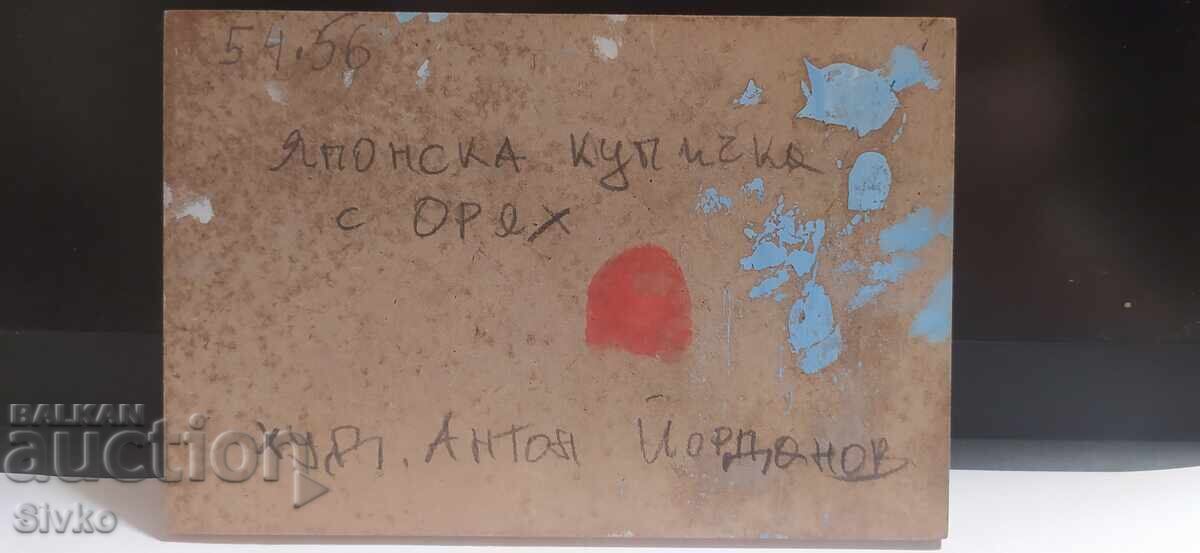 54.56
Японска купичка
с орех
худ. Антон Йорданов
BALKAN
auction
Sivko